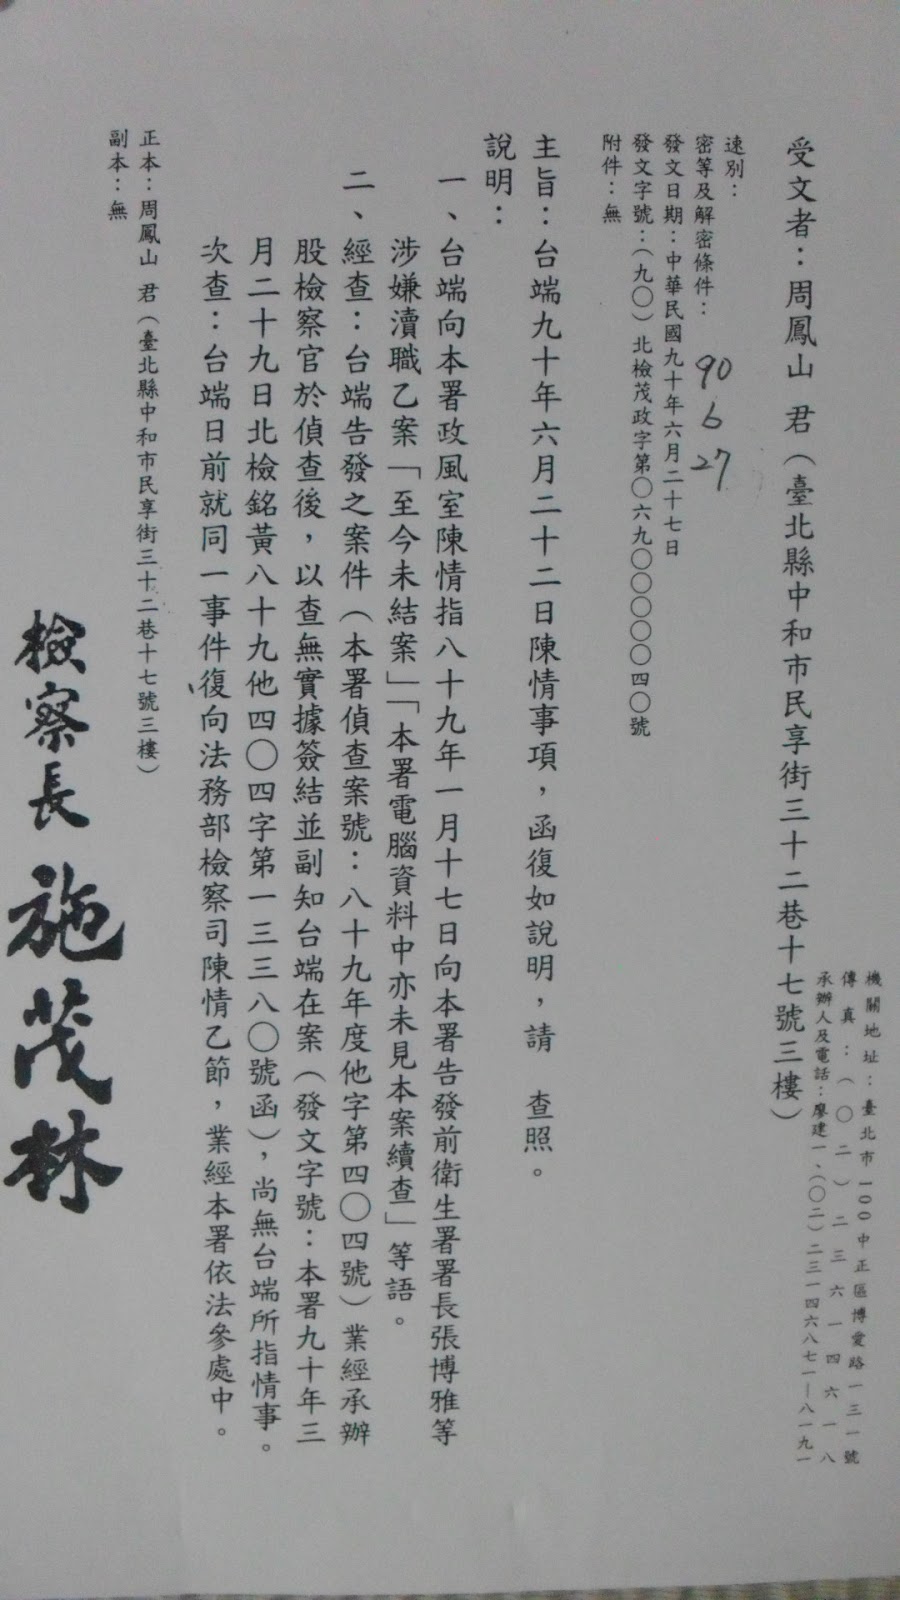 機關地址：臺北市100中正區博愛路一三一號
傳真：（○二）二三六一四六一八
承辦人及電話：廖建一、（○二）二三一四六八七一—八一九一
受文者：周鳳山 君（臺北縣中和市民享街三十二巷十七號三樓）
速別：
密等及解密條件：
90 6 27
發文日期：中華民國九十年六月二十七日
發文字號：（九○）北檢茂政字第○六九○○○○○四○號
附件：無
主旨：台端九十年六月二十二日陳情事項，函復如說明，請 查照。
說明：
一、台端向本署政風室陳情指八十九年一月十七日向本署告發前衛生署署長張博雅等
涉嫌瀆職乙案「至今未結案」「本署電腦資料中亦未見本案續查」等語。
二、經查：台端告發之案件（本署偵查案號：八十九年度他字第四○四號）業經承辦
股檢察官於偵查後，以查無實據簽結並副知台端在案（發文字號：本署九十年三
月二十九日北檢銘黃八十九他四○四字第一三三八○號函），尚無台端所指情事。
次查：台端日前就同一事件復向法務部檢察司陳情乙節，業經本署依法參處中。
正本：周鳳山 君（臺北縣中和市民享街三十二巷十七號三樓）
副本：無
檢察長 施茂林